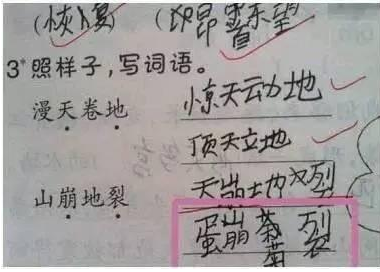 (恢复) (昂首东望)
3*照样子，写词语。
漫天卷地 惊天动地
顶天立地
山崩地裂 天崩地裂
蛋崩菊裂
菊